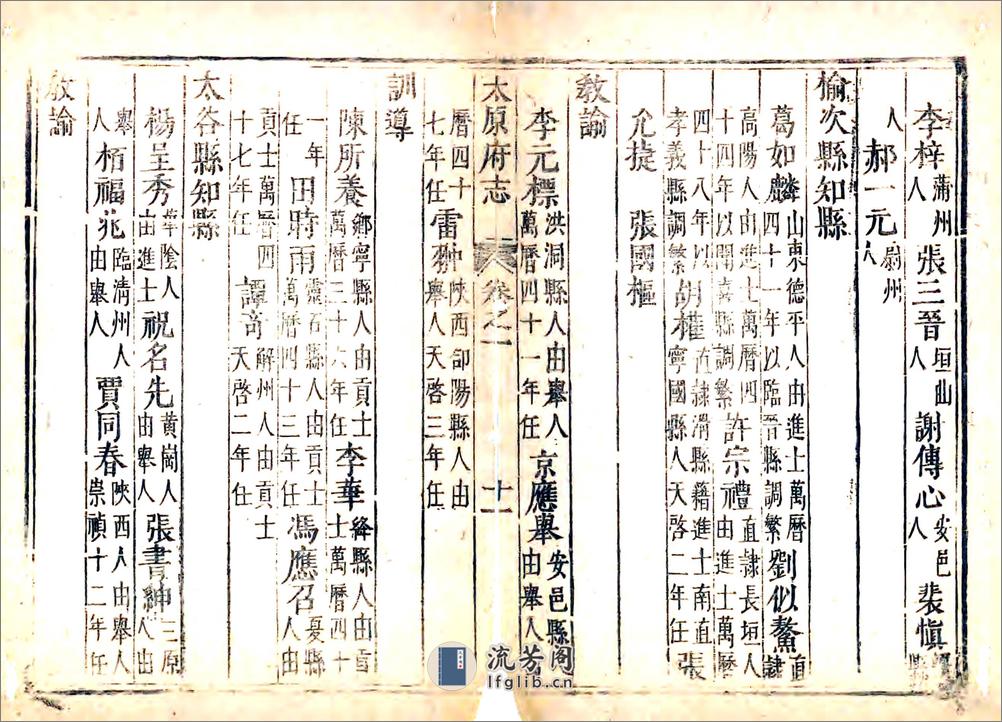 李梓蒲州人 張三晉垣曲人 謝傳心安邑人 裴愼縣
人 郝一元蔚州人
榆次縣知縣
葛如麟山東德平人由進士萬曆四十一年以臨晉縣調繁 劉似鰲直隸
高陽人由進士萬曆四十四年以聞喜縣調繁 許宗禮直隸長垣人由進士萬曆
四十八年以孝義縣調繁 胡權直隸滑縣籍進士南直寧國縣人天啓二年任 張
允捷 張國樞
教諭
李元標洪洞縣人由舉人萬曆四十一年任 京應舉安邑縣由舉人
太原府志 卷之一 十一
曆四十七年任 雷翀陝西郃陽縣人由舉人天啓三年任
訓導
陳所養鄉寧縣人由貢士萬曆三十六年任 李華絳縣人由貢士萬曆四十
一年任 田時雨靈石縣人由貢士萬曆四十三年任 馮應召夏縣人由
貢士萬曆四十七年任 譚奇解州人由貢士天啓二年任
太谷縣知縣
楊呈秀華陰人由進士 祝名先黃崗人由舉人 張書紳三原人由
舉人 栢福兆臨清州人由舉人 賈同春陝西人由舉人崇禎十二年任
教諭
流芳阁
lfglib.cn